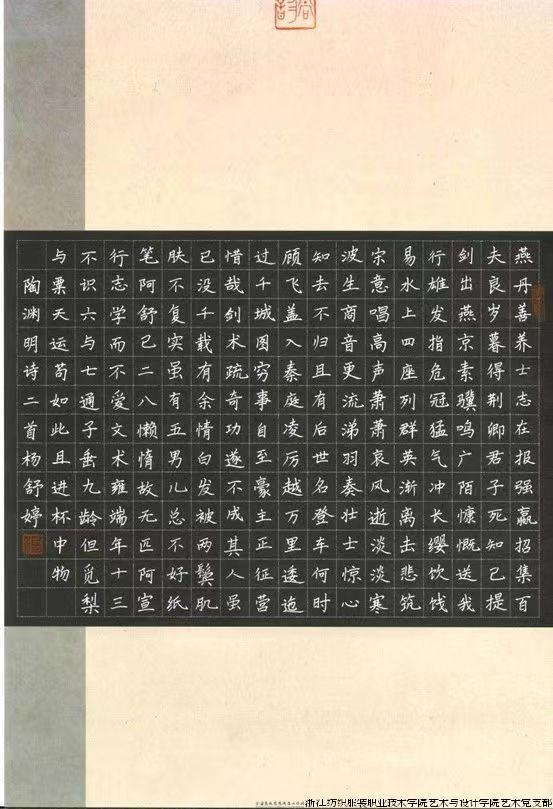 燕丹善养士志在报强嬴招集百
夫良岁暮得荆卿君子死知己提
剑出燕京素骥鸣广陌慷慨送我
行雄发指危冠猛气冲长缨饮饯
易水上四座列群英渐离击悲筑
宋意唱高声萧萧哀风逝淡淡寒
波生商音更流涕羽奏壮士惊心
知去不归且有后世名登车何时
顾飞盖入秦庭凌厉越万里逶迤
过千城图穷事自至豪主正征营
惜哉剑术疏奇功遂不成其人虽
已没千载有余情白发被两鬓肌
肤不复实虽有五男儿总不好纸
笔阿舒已二八懒惰故无匹阿宣
行志学而不爱文术雍端年十三
不识六与七通子垂九龄但觅梨
与粟天运苟如此且进杯中物
陶渊明诗二首杨舒婷
浙江纺织服装职业技术学院艺术与设计学院艺术党支部